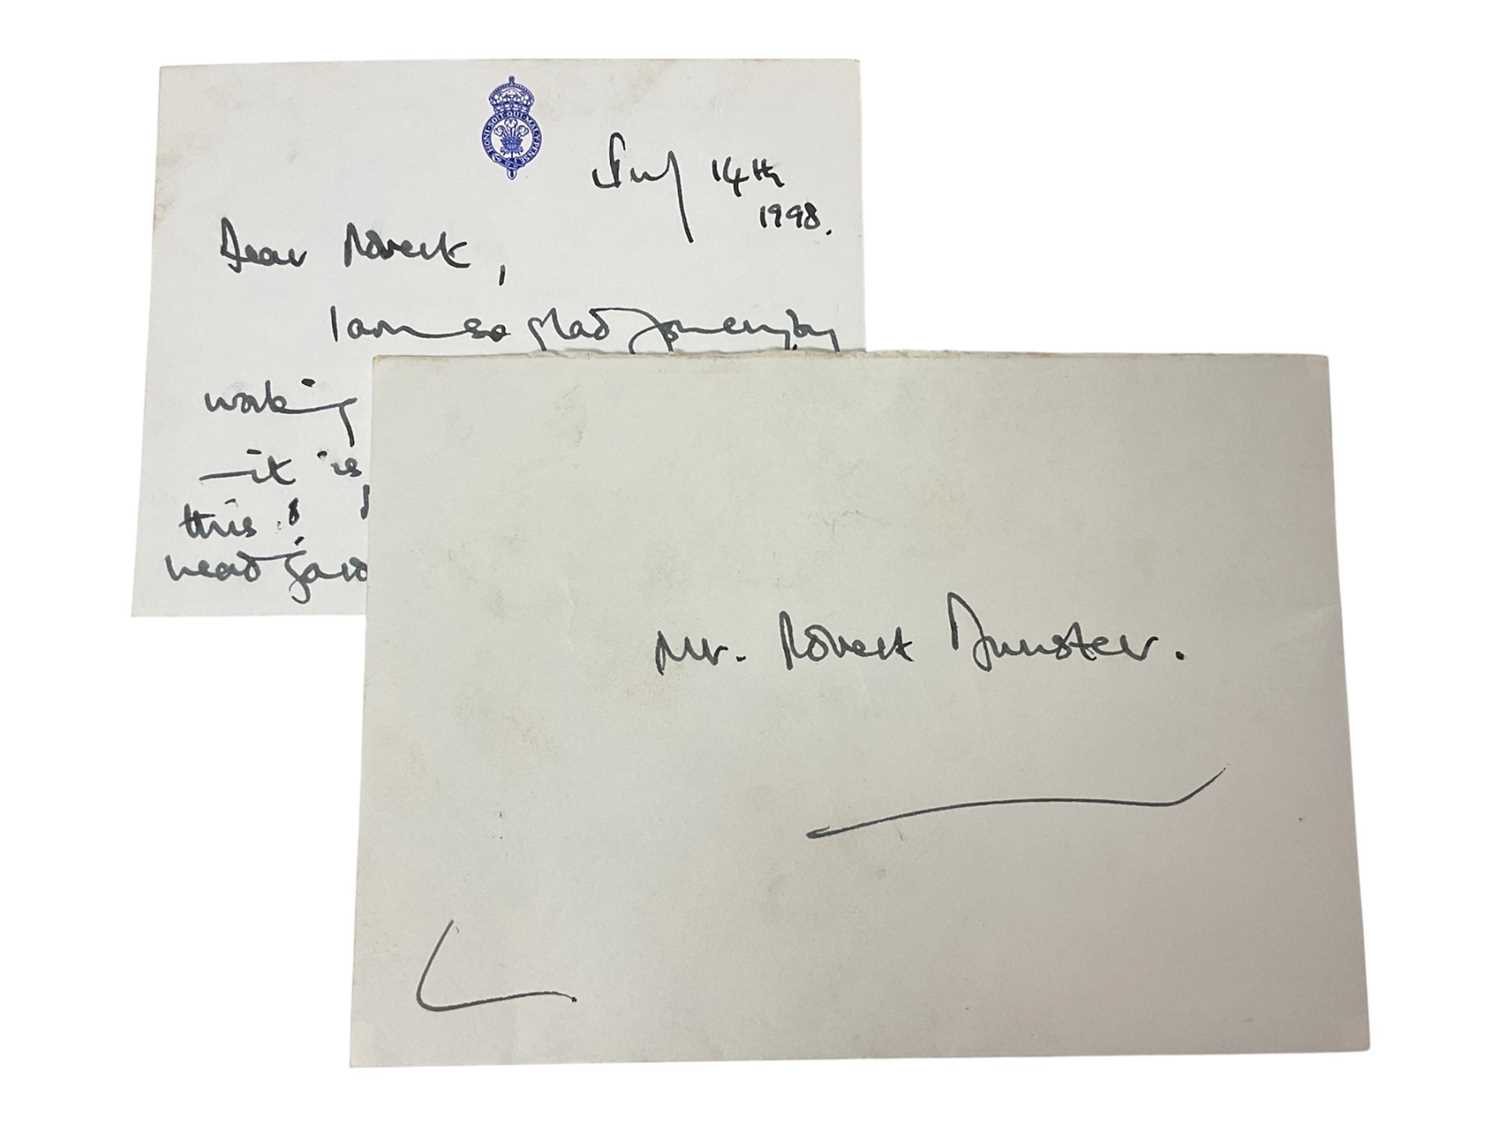 HONI SOIT QUI MAL Y PENSE
July 14th
1998.
Dear Robert,
I am so glad you enjoy
working
- it is
this!
head gard
Mr. Robert Dunster.